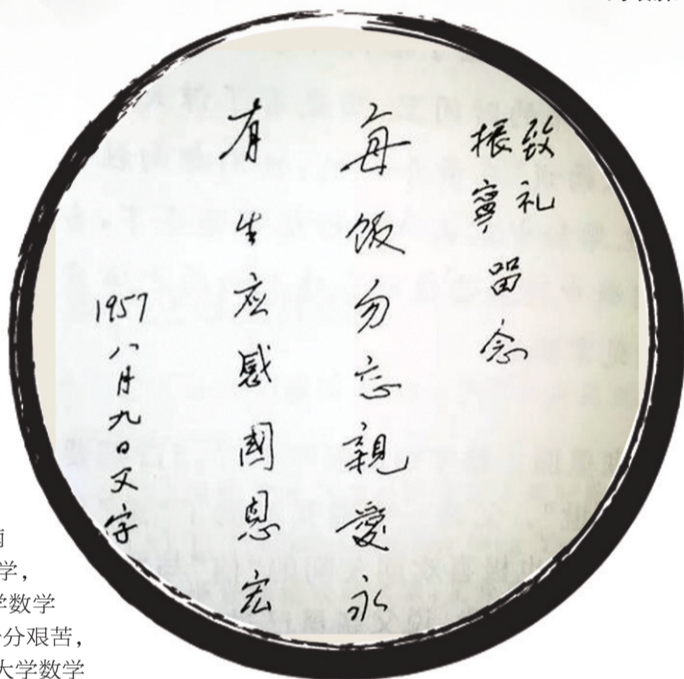 致礼
振寧
留念
每飯勿忘親愛永
有生应感國恩宏
1957八月九日父字
学，
学数学
分艰苦，
大学数学